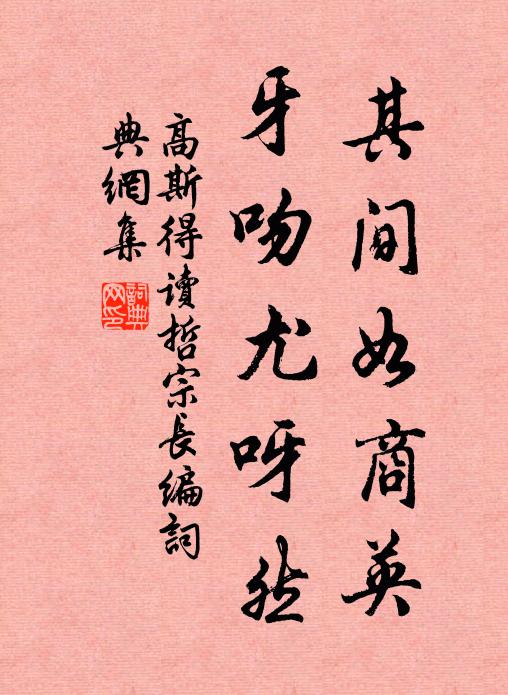 其間如商英
牙吻尤呀然
高斯得讀哲宗長編詞
典網集
詞典
网印